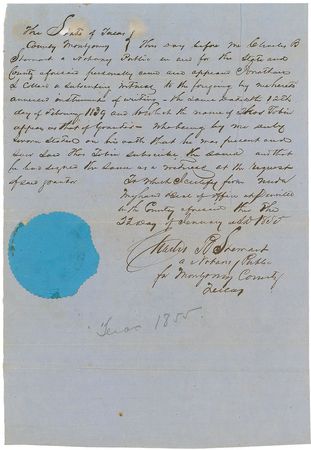 The State of Texas
County Montgomery } This day before me Charles B
Stewart a Notary Public in and for the State and
County aforesaid personally came and appeared Jonathan
S Collard a subscribing witness to the foregoing
annexed instrument of writing the same dated 12th
day of February 1839 and to which the name of Thos Tobin
appears as that of Grantor Who being by me duly
sworn stated on his oath that he was present and
saw said Thos Tobin subscribe the same and that
he had signed the same as a witness at the request
of said grantor
To Which I certify from under
my hand & seal of office at Danville
in the County aforesaid this the
22 Day of January AD 1855
Charles B Stewart
a Notary Public
for Montgomery County
Texas
Texas 1855